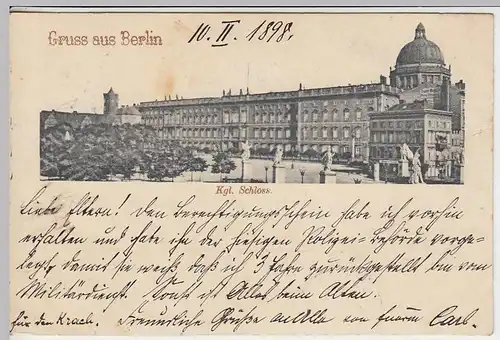 Gruss aus Berlin
10. II. 1898.
Kgl. Schloss.
Liebe Eltern! Den Berechtigungsschein habe ich vorhin
erhalten und habe ihn der hiesigen Polizei-behörde vorge-
legt, damit sie weiß, daß ich 3 Jahre zurückgestellt bin vom
Militärdienst. Sonst ist Alles beim Alten.
Freundliche Grüße an Alle von Eurem Carl.
für den Krach.